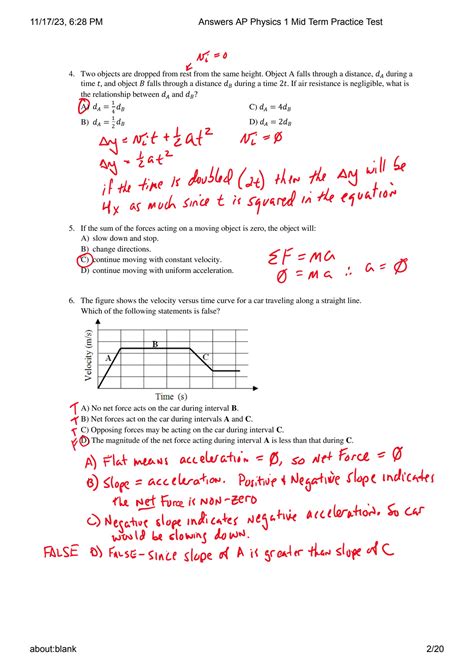 11/17/23, 6:28 PM Answers AP Physics 1 Mid Term Practice Test
Ni = 0
4. Two objects are dropped from rest from the same height. Object A falls through a distance, dA during a
time t, and object B falls through a distance dB during a time 2t. If air resistance is negligible, what is
the relationship between dA and dB?
A) dA = 1/4 dB C) dA = 4dB
B) dA = 1/2 dB D) dA = 2dB
Δy = Nit + 1/2 at² Ni = Ø
Δy = 1/2 at²
if the time is doubled (2t) then the Δy will be
4x as much since t is squared in the equation
5. If the sum of the forces acting on a moving object is zero, the object will:
A) slow down and stop.
B) change directions.
C) continue moving with constant velocity.
D) continue moving with uniform acceleration.
ΣF = ma
Ø = ma ∴ a = Ø
6. The figure shows the velocity versus time curve for a car traveling along a straight line.
Which of the following statements is false?
Velocity (m/s)
A B C
Time (s)
T A) No net force acts on the car during interval B.
T B) Net forces act on the car during intervals A and C.
T C) Opposing forces may be acting on the car during interval C.
F D) The magnitude of the net force acting during interval A is less than that during C.
A) Flat means acceleration = Ø, so Net Force = Ø
B) Slope = acceleration. Positive & Negative slope indicates
the Net Force is NON-ZERO
C) Negative slope indicates negative acceleration. So car
would be slowing down.
FALSE D) FALSE - SINCE slope of A is greater than slope of C
about:blank 2/20